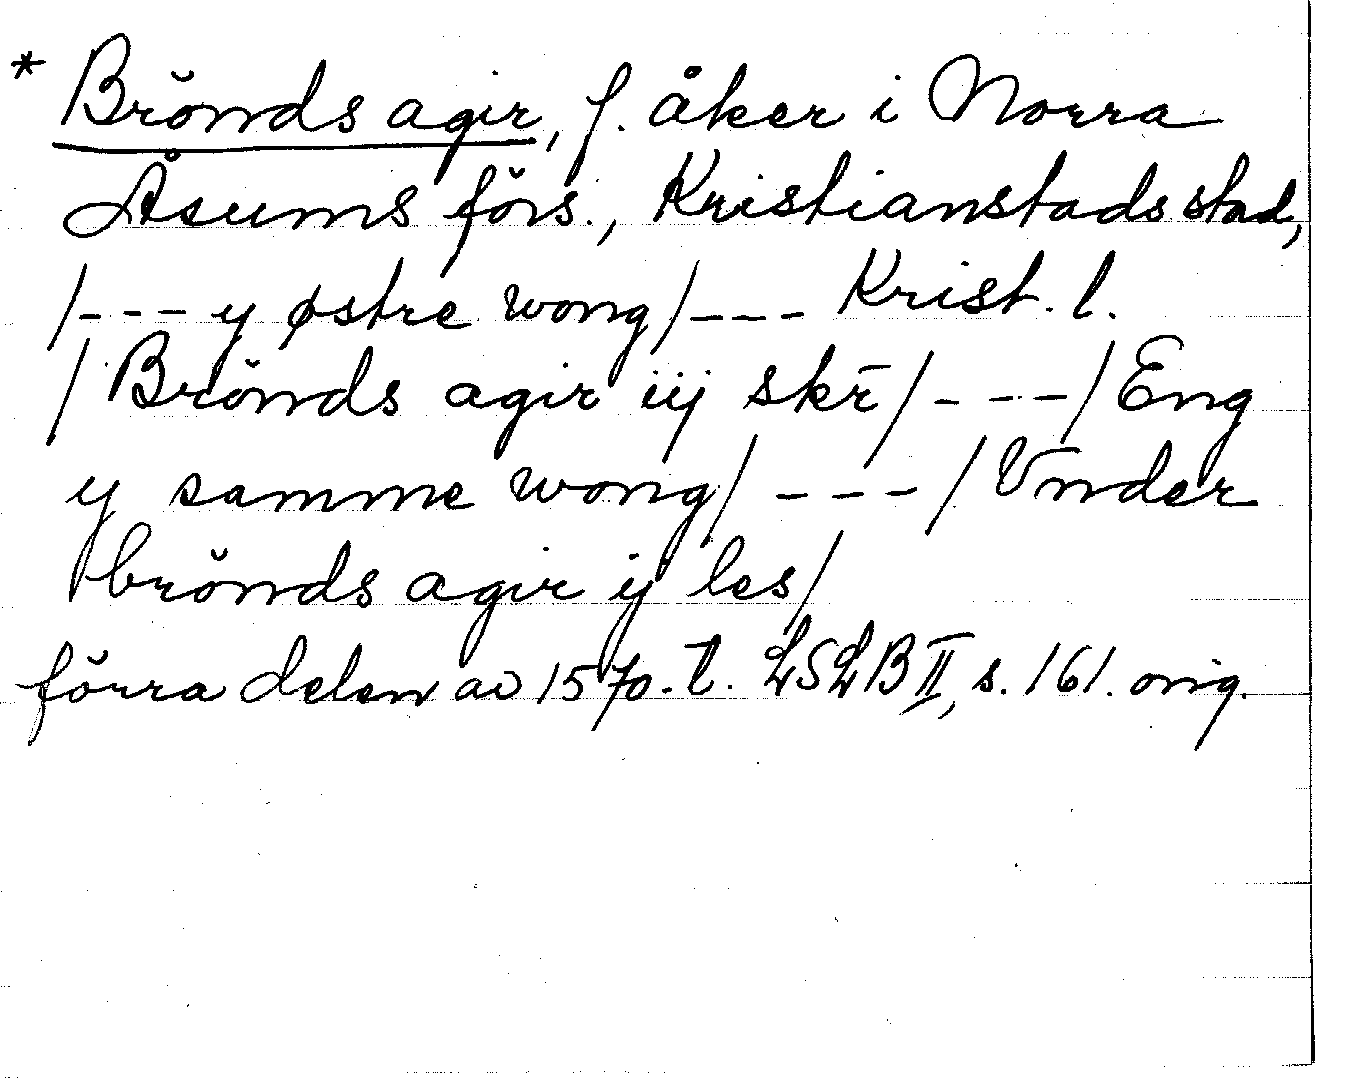 * Brŏnds agir, f. åker i Norra
Åsums förs., Kristianstads stad,
/--- y østre wong/--- Krist. l.
/ Brŏnds agir iij skr̄/---/ Eng
y samme wong/ ---/ Vnder
brŏnds agir ij les/
förra delen av 1570-t. LSLB II, s. 161. orig.